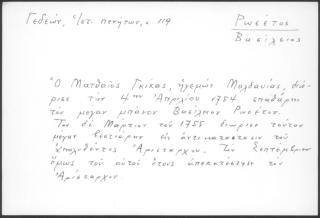 Γεδεών, Ἀ/στ. πενήτων, σ. 119
Ρωσέτος
Βασίλειος
Ὁ Ματθαῖος Γκίκας, ἡγεμών Μολδαυΐας, διώ-
ρισε την 4ην Ἀπριλίου 1754 σπαθάρη
τον μεγαν μπάνον Βασίλειον Ρωσέτον.
Τον δε Μάρτιον τοῦ 1755 διώρισε τοῦτον
μεγαν βεστιάρην εἰς ἀντικατάστασιν του
Ἀρίσταρχου. Τον Σεπτέμβριον
ὅμως τοῦ αὐτοῦ ἔτους ἀποκατέστησε τον
Ἀρίσταρχον.